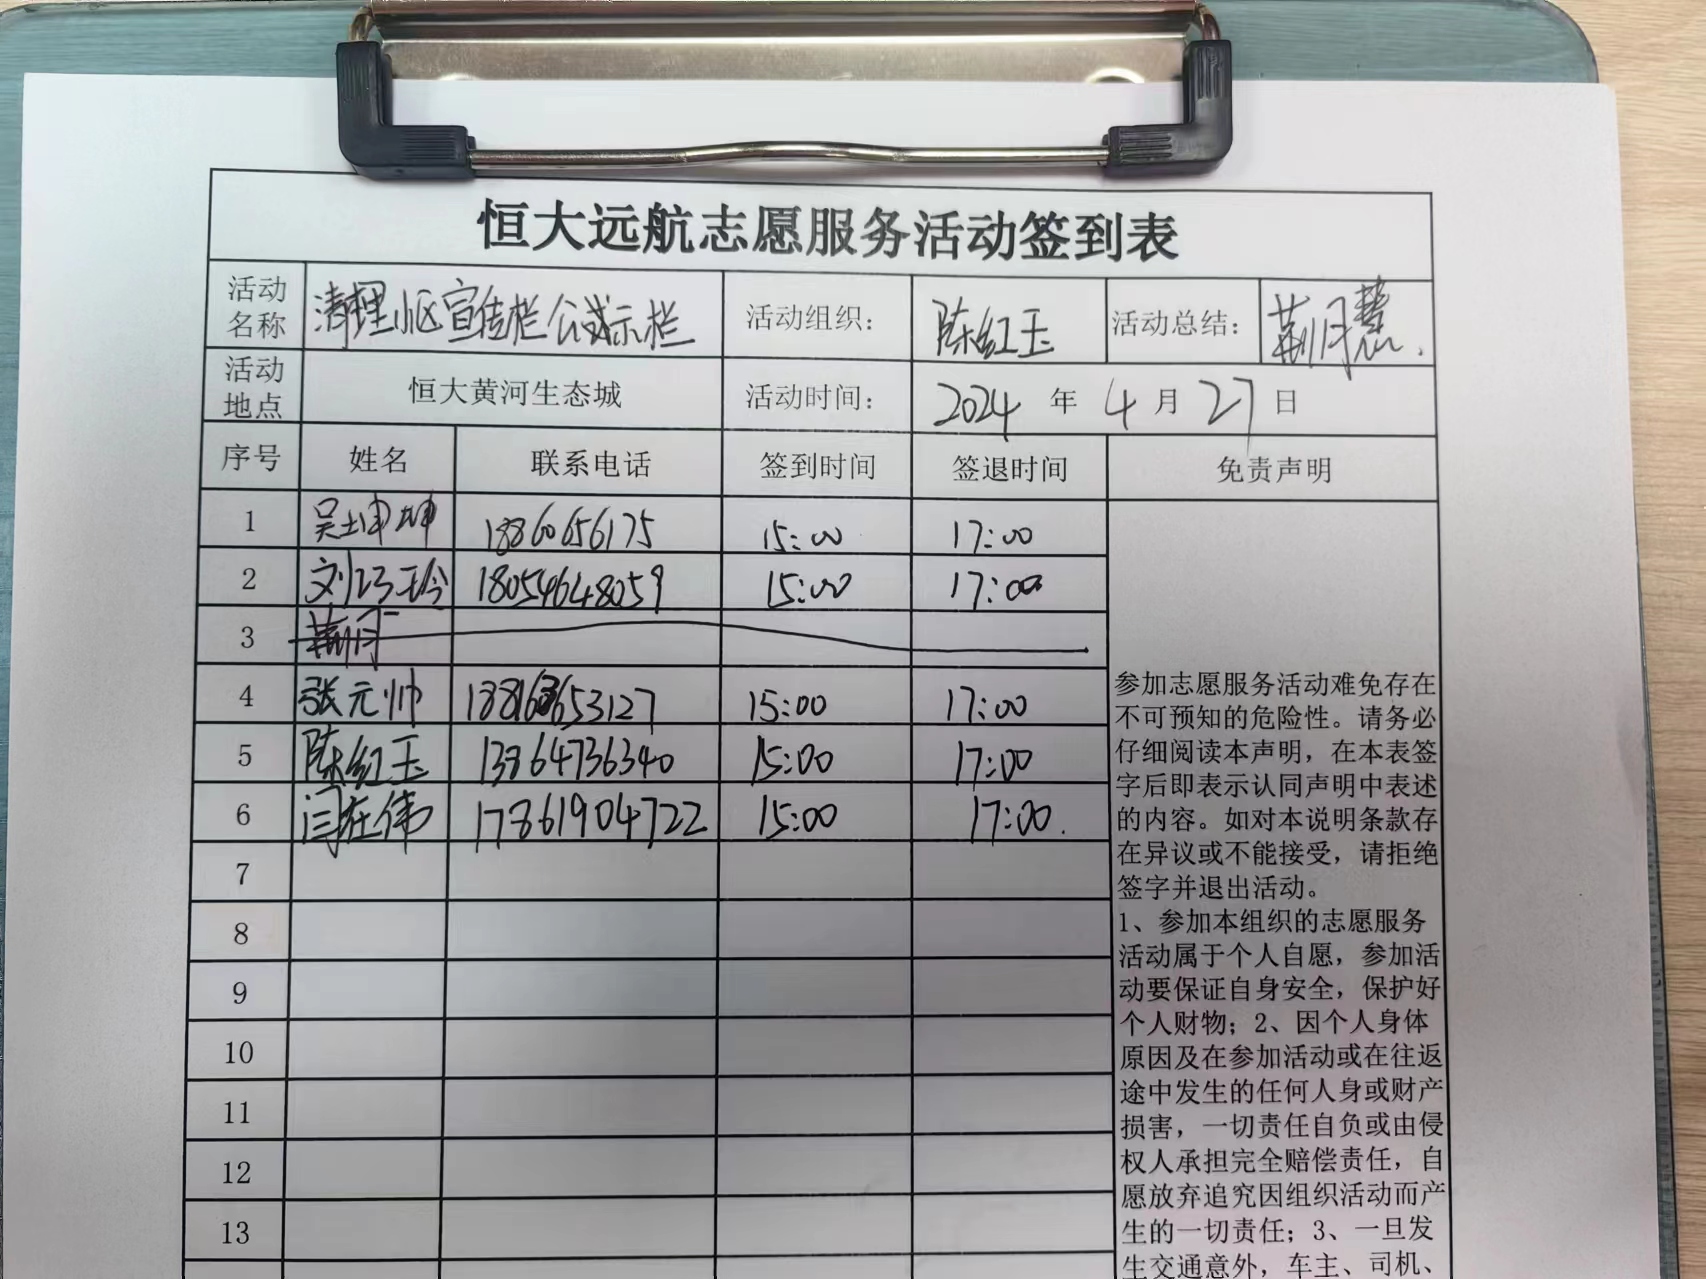 恒大远航志愿服务活动签到表
活动名称 清理小区宣传栏公示栏 活动组织： 陈红玉 活动总结： 荆月慧
活动地点 恒大黄河生态城 活动时间： 2024 年 4 月 27 日
序号 姓名 联系电话 签到时间 签退时间 免责声明
1 吴坤坤 18860656175 15:00 17:00
2 18054648059 15:00 17:00
3 荆月
4 张元帅 15:00 17:00
5 陈红玉 13864736340 15:00 17:00
6 闫在伟 17861904722 15:00 17:00.
7
8
9
10
11
12
13
参加志愿服务活动难免存在
不可预知的危险性。请务必
仔细阅读本声明，在本表签
字后即表示认同声明中表述
的内容。如对本说明条款存
在异议或不能接受，请拒绝
签字并退出活动。
1、参加本组织的志愿服务
活动属于个人自愿，参加活
动要保证自身安全，保护好
个人财物；2、因个人身体
原因及在参加活动或在往返
途中发生的任何人身或财产
损害，一切责任自负或由侵
权人承担完全赔偿责任，自
愿放弃追究因组织活动而产
生的一切责任；3、一旦发
生交通意外，车主、司机、